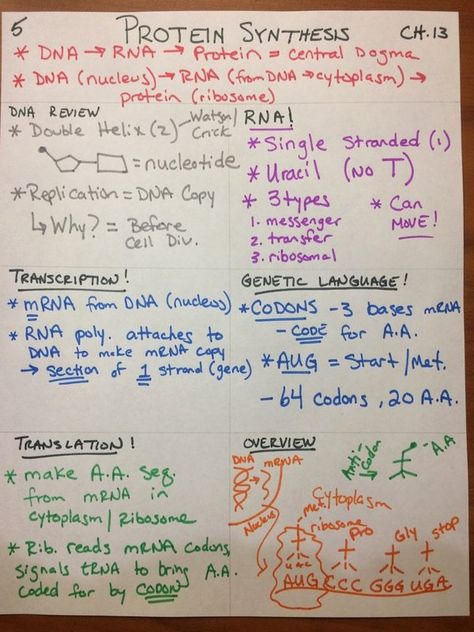 5
PROTEIN SYNTHESIS
CH.13
* DNA → RNA → Protein = Central Dogma
* DNA (nucleus) → RNA (from DNA → cytoplasm) →
protein (ribosome)
DNA REVIEW
* Double Helix (2) - Watson/
Crick
= nucleotide
* Replication = DNA Copy
↳ Why? = Before
Cell Div.
RNA!
* Single Stranded (1)
* Uracil (No T)
* 3 types
1. messenger
2. transfer
3. ribosomal
* Can
MOVE!
TRANSCRIPTION!
* mRNA from DNA (nucleus)
* RNA poly. attaches to
DNA to make mRNA copy
→ section of 1 strand (gene)
GENETIC LANGUAGE!
* CODONS - 3 bases mRNA
- CODE for A.A.
* AUG = Start/Met.
- 64 codons, 20 A.A.
TRANSLATION!
* make A.A. seq.
from mRNA in
cytoplasm/Ribosome
* Rib. reads mRNA codons,
signals tRNA to bring A.A.
coded for by CODON
OVERVIEW
DNA
mRNA
Nucleus
Anti-
Codon
- A.A
Cytoplasm
Met.
ribosome
Pro
Gly
Stop
UAC
AUG CCC GGG UGA